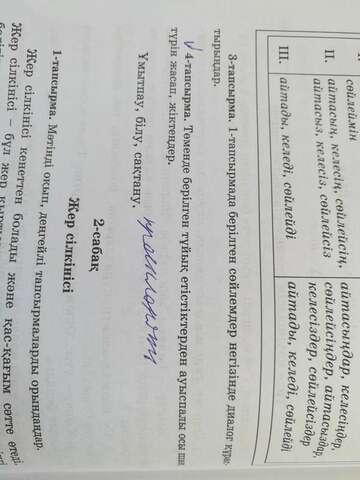 сөйлеймін
II. айтасың, келесің, сөйлейсің, айтасыңдар, келесіңдер,
айтасыз, келесіз, сөйлейсіз сөйлейсіңдер, айтасыздар,
келесіздер, сөйлейсіздер
III. айтады, келеді, сөйлейді айтады, келеді, сөйлейді
3-тапсырма. 1-тапсырмада берілген сөйлемдер негізінде диалог құрас-
тырыңдар.
4-тапсырма. Төменде берілген тұйық етістіктерден ауыспалы осы шақ
түрін жасап, жіктеңдер.
Ұмытпау, білу, сақтану.
2-сабақ
Жер сілкінісі
1-тапсырма. Мәтінді оқып, деңгейлі тапсырмаларды орындаңдар.
Жер сілкінісі кенеттен болады және қас-қағым сәтте өтеді.
Жер сілкінісі – бұл жер